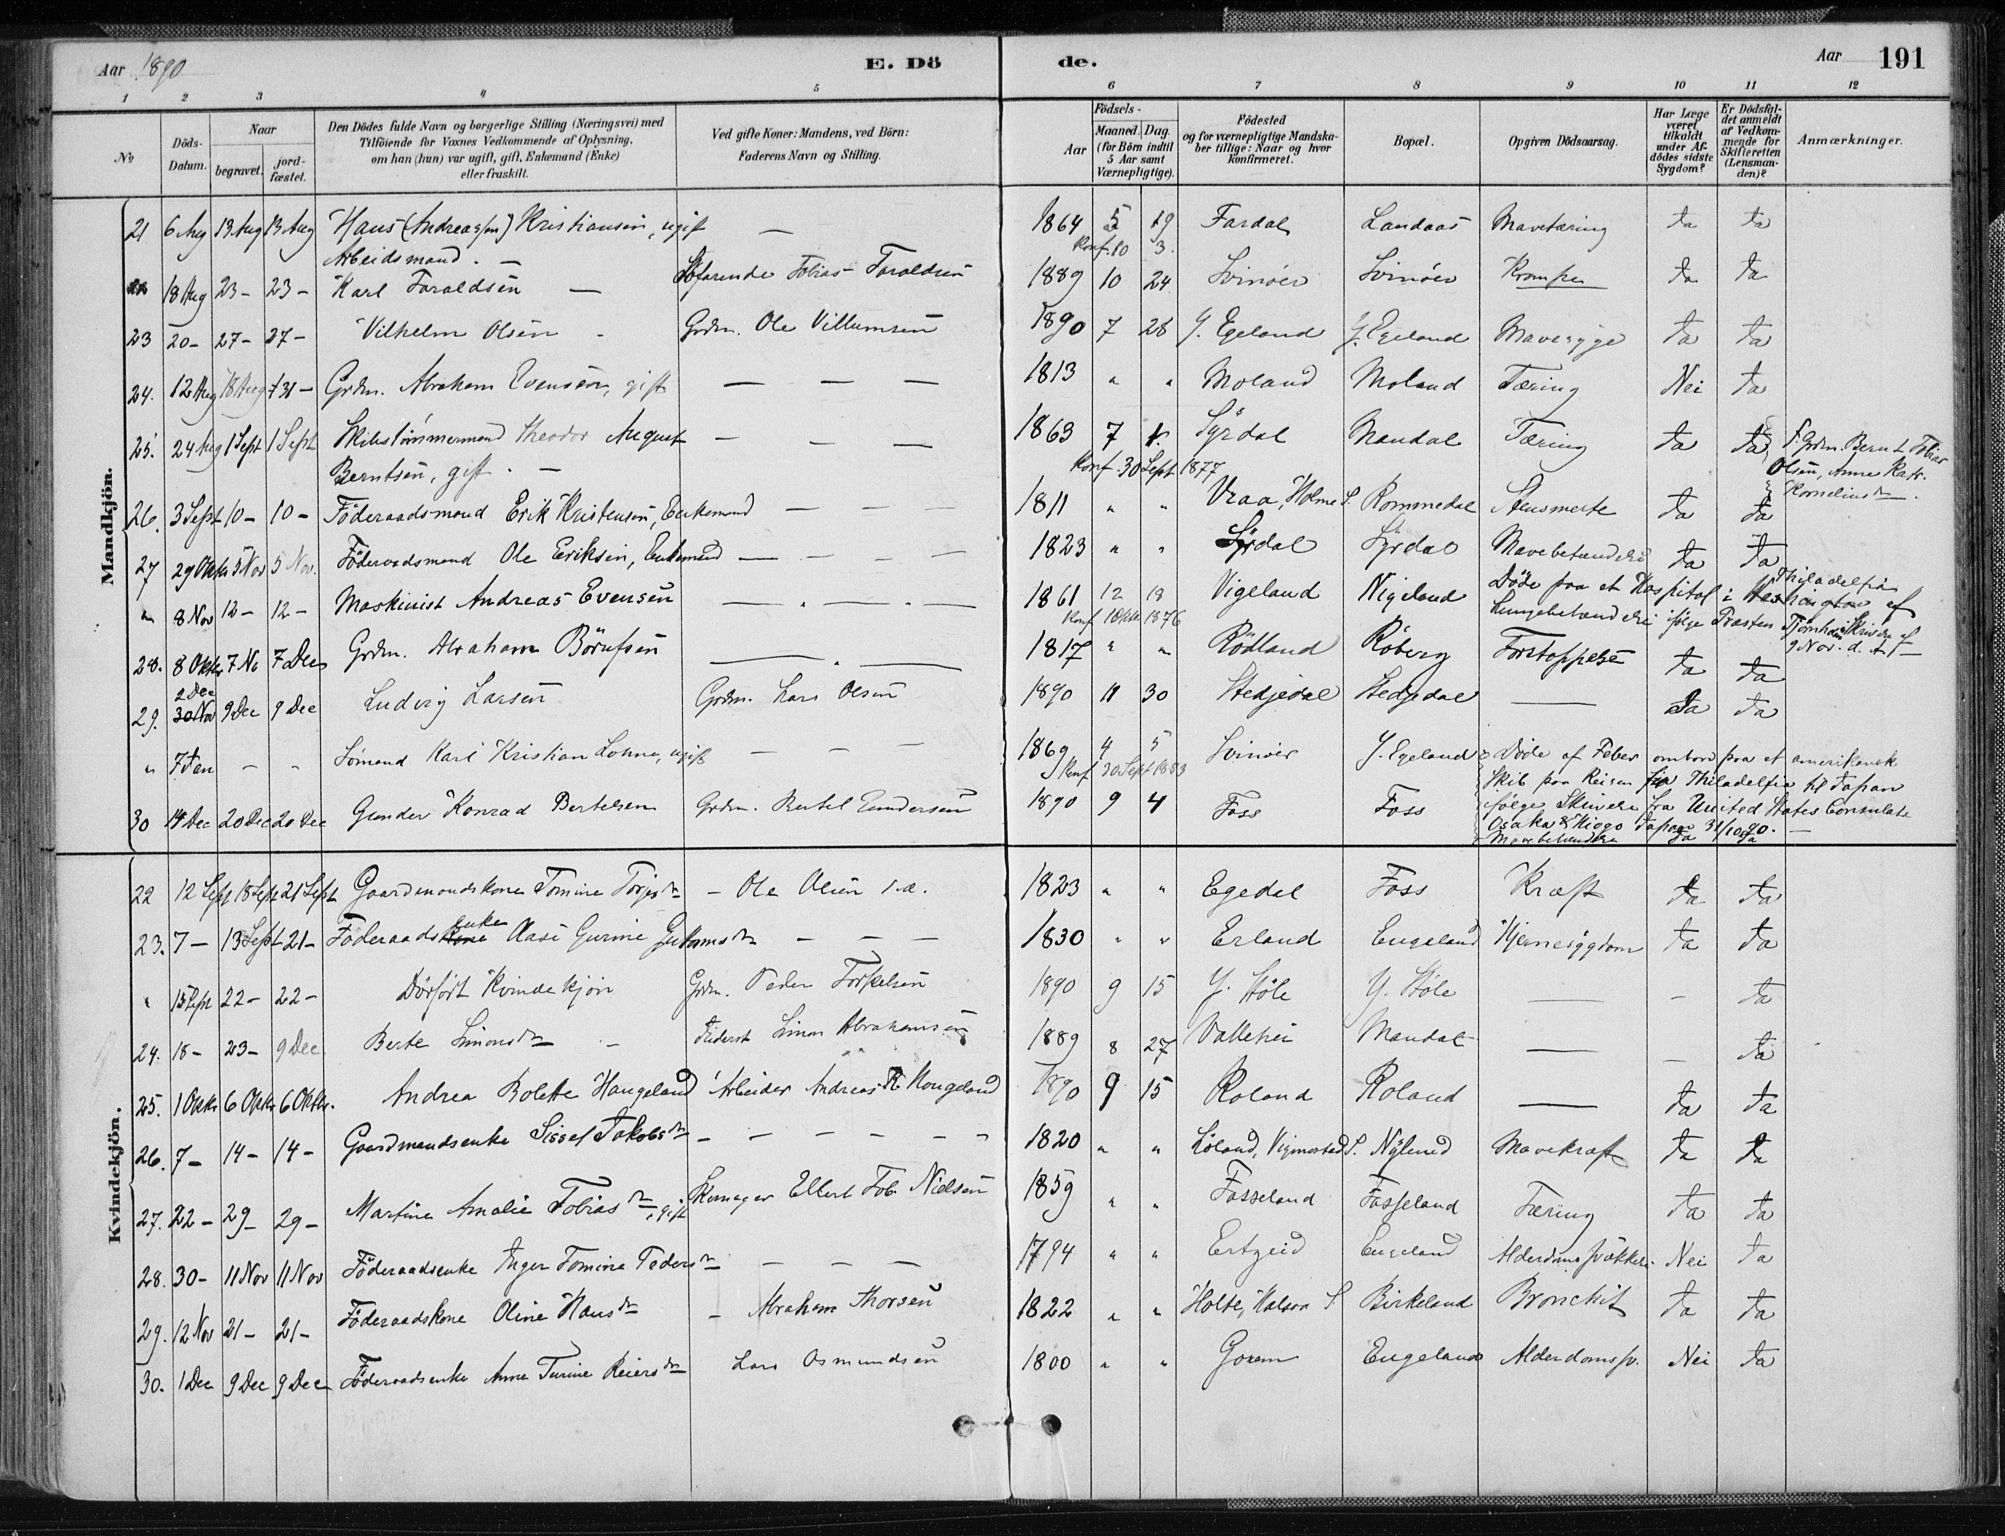 Aar 1890 E. Dö de. Aar 191
1 2 3 4 5 6 7 8 9 10 11 12
No
Döds-Datum.
Naar
begravet.
jord-fæstet.
Den Dödes fulde Navn og borgerlige Stilling (Næringsvei) med
Tilföiende for Voxnes Vedkommende af Oplysning,
om han (hun) var ugift, gift, Enkemand (Enke)
eller fraskilt.
Ved gifte Koner: Mandens, ved Börn:
Faderens Navn og Stilling.
Födsels-
Aar
Maaned. Dag.
(for Börn indtil
5 Aar samt
Værnepligtige).
Födested
og for værnepligtige Mandska-
ber tillige: Naar og hvor
Konfirmeret.
Bopæl.
Opgiven Dödsaarsag.
Har Læge
været
tilkaldt
under Af-
dödes sidste
Sygdom?
Er Dödsfal-
det anmeldt
af Vedkom-
mende for
Skifteretten
(Lensman-
den)?
Anmærkninger.
Mandkjön.
21 6 Aug 13 Aug 13 Aug Hans (Andreassen) Kristiansen, ugift — 1864 5 19 Fardal Landaas Mavetæring Ja Ja
Arbeidsmand. — Konf. 10 3.
18 Aug 23 - 23 - Karl Taraldsen — Söfarende Tobias Taraldsen 1889 10 24 Svinöer Svinöer Krampe Ja Ja
23 20 - 27 - 27 - Vilhelm Olsen - Grdm. Ole Villumsen 1890 7 28 Y. Egeland Y. Egeland Mavesyge Ja Ja
24. 12 Aug 18 Aug 31 - Grdm. Abraham Evensen, gift — — — 1813 " " Moland Moland Tæring Nei Ja
25. 24 Aug 1 Sept 1 Sept Skibstömmermand Theodor August — — — 1863 7 Syrdal Mandal Tæring Ja Ja Grdm. Bernt Tobias
Berntsen, gift. — Konf. 30 Sept 1877 Olsen, Anne Katr.
Kornelius dtr.
26. 3 Sept 10 - 10 - Föderaadsmand Erik Kristensen, Enkemand — — — 1811 " " Vraa, Holme S. Rommedal Ja Ja
27 29 Oktbr 5 Nov 5 Nov. Föderaadsmand Ole Eriksen, Enkemand — — — 1823 " " Syrdal Syrdal Mavebetændelse Ja Ja
" 8 Nov 12 - 12 - Maskinist Andreas Evensen — — — 1861 12 18 Vigeland Vigeland Döde paa et Hospital i Philadelfia af
Konf 1 Oktbr 1876 Lungebetændelse ifölge Præsten Skrivelse af
9 Nov. d. A.
28. 8 Oktbr 7 No 7 Dec Grdm. Abraham Börufsen — — 1817 " " Rödland Röberg Forstoppelse Ja Ja
2 Dec
29. 30 Nov 9 Dec 9 Dec Ludvig Larsen Grdm. Lars Olsen 1890 11 30 Stedjedal Stedjedal — Ja Ja
" 7 Jan - - Sömand Karl Kristian Lohne, ugift — — 1869 4 5 Svinöer Y. Egeland Döde af Feber ombord paa et amerikansk
Konf 30 Sept 1883 Skib paa Reisen fra Philadelfia til Japan
30 14 Dec 20 Dec 20 Dec Gunder Konrad Bertelsen Grdm. Bertel Gundersen 1890 9 4 Foss Foss fölge Skrivelse fra United States Consulate
Osaka & Hiogo Japan 31/10 90. —
Mavebetændelse Ja Ja
Kvindekjön.
22 12 Sept 18 Sept 21 Sept Gaardmandskone Tomine Torjesdtr — Ole Olsen 1823 " " Egedal Foss Kræft Ja Ja
23. 7 - 13 Sept 21 - Föderaadsenke Aase Gurine — — — 1830 " " Erland Engeland Hjernesygdom Ja Ja
" 15 Sept 22 - 22 - Dödfödt Kvindekjön Grdm. Peder Torkelsen 1890 9 15 Y. Stöle Y. Stöle — - Ja
24. 18 - 23 - 9 Dec Berte Simonsdtr — Simon Abrahamsen 1889 8 27 Vallehei Mandal — - Ja
25. 1 Oktbr 6 Oktbr 6 Oktbr. Andrea Bolette Haugeland Arbeider Andreas R Haugeland 1890 9 15 Roland Roland — Ja Ja
26. 7 - 14 - 14 - Gaardmandsenke Sissel Jakobsdtr — — — 1820 " " Löland, Vigmostad S. Nylund Mavekræft Ja Ja
27. 22 - 29 - 29 - Martine Amalie Tobiasdtr, gift Skomager Ellert Tob. Nielsen 1859 " " Fasseland Fasseland Tæring Ja Ja
28. 30 - 11 Nov 11 Nov Föderaadsenke Inger Tomine Pedersdtr — — — 1794 " " Ertzeid Engeland Alderdomssvækkelse Nei Ja
29. 12 Nov 21 - 21 - Föderaadskone Oline Hansdtr — Abraham Thorsen 1822 " " Holte, Halsaa S Birkeland Bronchit Ja Ja
30. 1 Dec 9 Dec 9 Dec Föderaadsenke Anne Turine Reiersdtr Lars Osmundsen 1800 " " Engeland Alderdomssv. Nei Ja